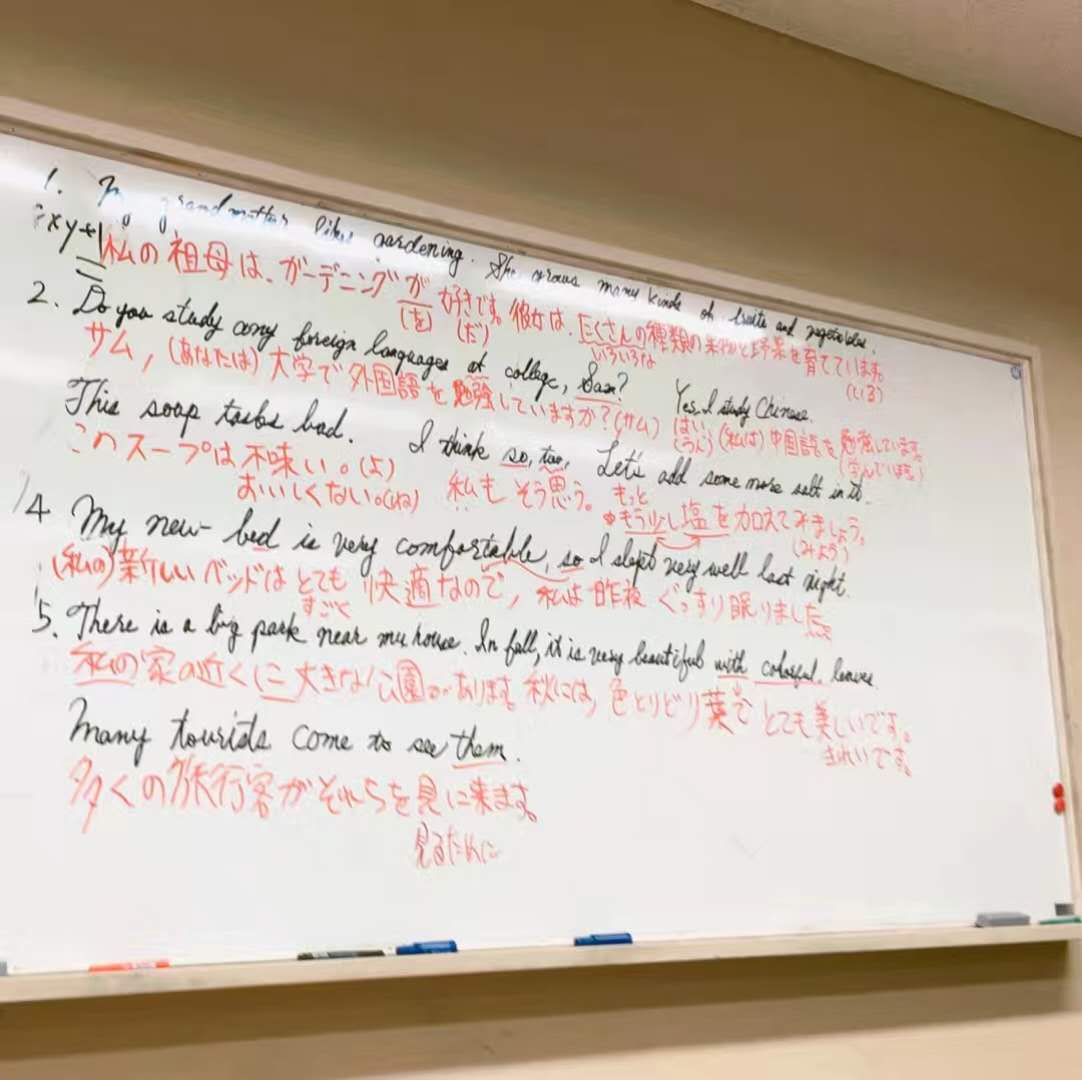 1. My grandmother likes gardening. She grows many kinds of fruits and vegetables.
xy+1
私の祖母は、ガーデニングが好きです。彼女は、たくさんの種類の果物と野菜を育てています。
(を) (だ) いろいろな (いる)
2. Do you study any foreign languages at college, Sam? Yes, I study Chinese.
サム, (あなたは) 大学で外国語を勉強していますか？(サム) はい, (私は) 中国語を勉強しています。
(うん) (学んでいます)
This soap tastes bad. I think so, too. Let's add some more salt in it.
このスープは不味い。(よ) 私もそう思う。もっと
おいしくない。(わね) もう少し塩を加えてみましょう。
(みよう)
4 My new bed is very comfortable, so I slept very well last night.
(私の) 新しいベッドはとても快適なので, 私は昨夜ぐっすり眠りました
すごく
5. There is a big park near my house. In fall, it is very beautiful with colorful leaves.
私の家の近くに大きな公園があります。秋には, 色とりどり葉でとても美しいです。
きれいです。
Many tourists come to see them.
多くの旅行客がそれらを見に来ます。
見るために